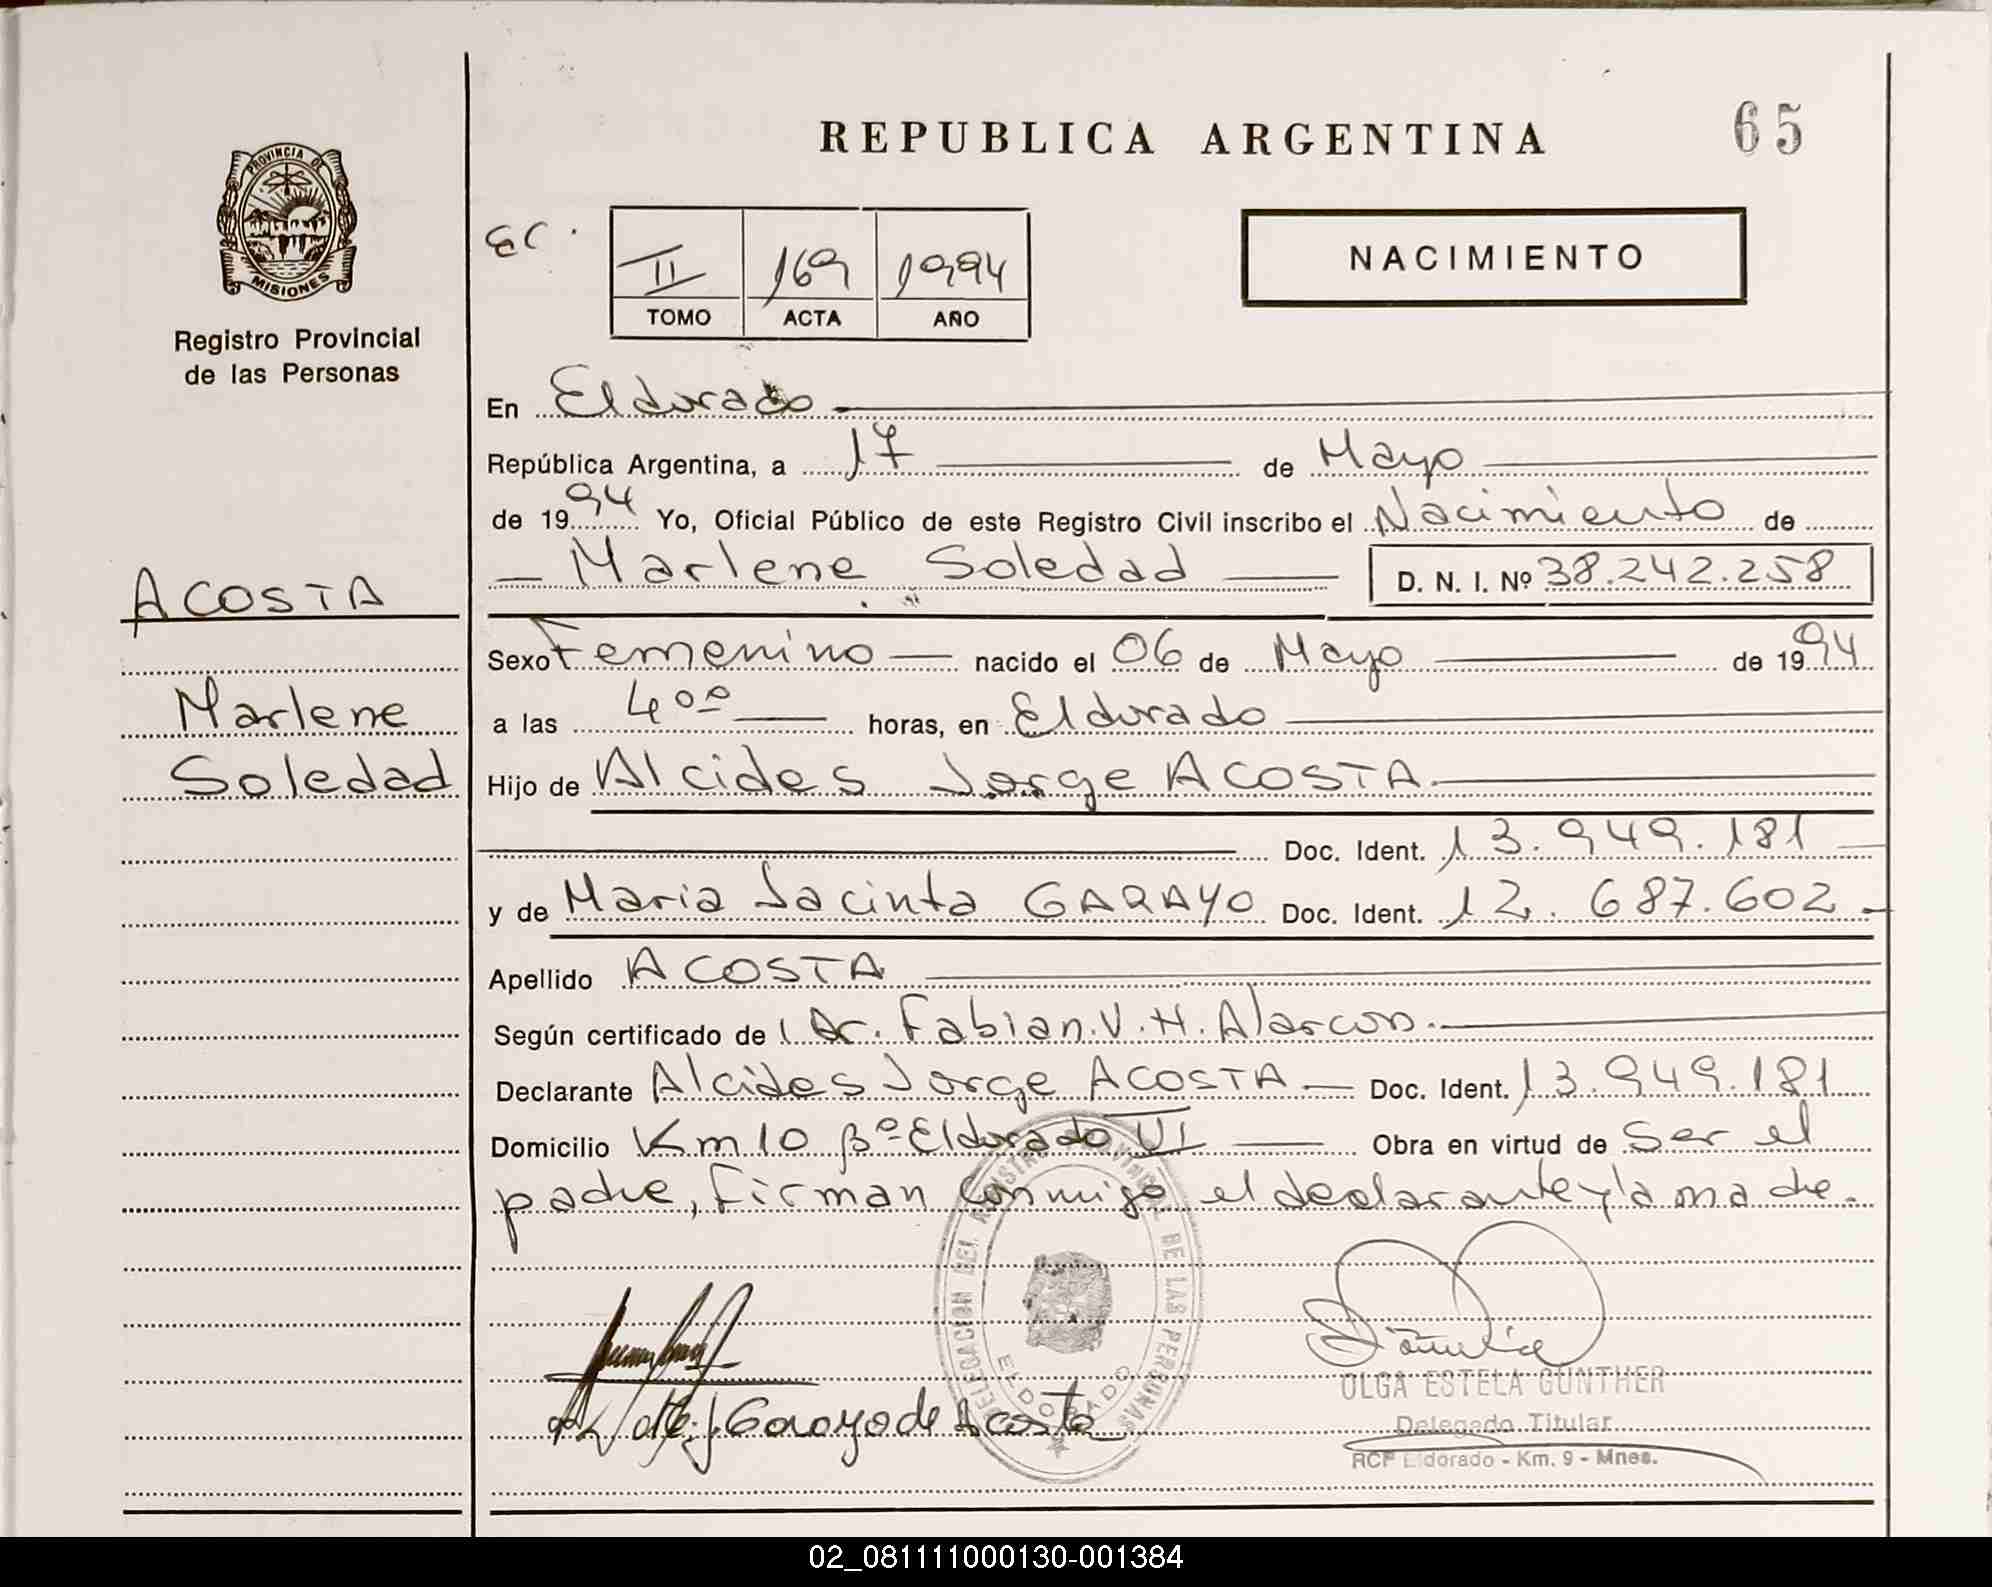 REPUBLICA ARGENTINA
65
PROVINCIA DE
MISIONES
Registro Provincial
de las Personas
EC.
II 169 1994
TOMO ACTA AÑO
NACIMIENTO
En Eldorado
República Argentina, a 17 de Mayo
de 1994 Yo, Oficial Público de este Registro Civil inscribo el Nacimiento de
Marlene Soledad D. N. I. Nº 38.242.258
ACOSTA
Marlene
Soledad
Sexo Femenino nacido el 06 de Mayo de 1994
a las 4ºº horas, en Eldorado
Hijo de Alcides Jorge ACOSTA
Doc. Ident. 13.949.181
y de Maria Jacinta GARAYO Doc. Ident. 12.687.602
Apellido ACOSTA
Según certificado de Dr. Fabian. V. H. Alarcon.
Declarante Alcides Jorge ACOSTA Doc. Ident. 13.949.181
Domicilio Km 10 Bº Eldorado VI Obra en virtud de Ser el
padre, firman conmigo el declarante y la madre.
DELEGACION DEL REGISTRO PROVINCIAL DE LAS PERSONAS
ELDORADO
Garayo de Acosta
OLGA ESTELA GUNTHER
Delegado Titular
RCP Eldorado - Km. 9 - Mnes.
02_081111000130-001384